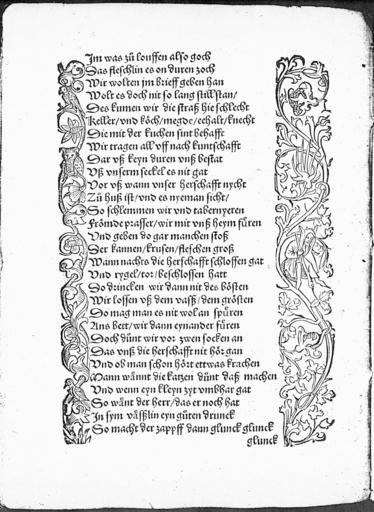 Im was zů louffen also goch
Das fleschlin es on duren zoch
Wir wolten jm brieff geben han
Wolt es doch nit so lang stillstan/
Des kumen wir die straß hie schlecht
Keller/vnd köch/megde/eehalt/knecht
Die mit der kuchen sint behafft
Wir tragen all vff nach kuntschafft
Dar vß keyn duren vnß bestat
Vß vnserm seckel es nit gat
Vor vß wann vnser herschafft nycht
Zů huß ist/vnd es nyeman sicht/
So schlemmen wir vnd tabernyeren
Frömde prasser/wir mit vnß heym füren
Vnd geben do gar manchen stoß
Der kannen/krusen/fleschen groß
Wann nachts die herschafft schloffen gat
Vnd rygel/tor/beschlossen hatt
So drincken wir dann nit des bösten
Wir lossen vß dem vassß/dem grösten
So mag man es nit wol an spüren
Ans bett/wir dann eynander füren
Doch dünt wir vor zwen socken an
Das vnß die herschafft nit hör gan
Vnd ob man schon hört ettwas krachen
Mann wännt die katzen dünt daß machen
Vnd wenn eyn kleyn zyt vmbhar gat
So wänt der herr/das er noch hat
In sym väßlin eyn gůten drunck
So macht der zappff dann glunck glunck
glunck